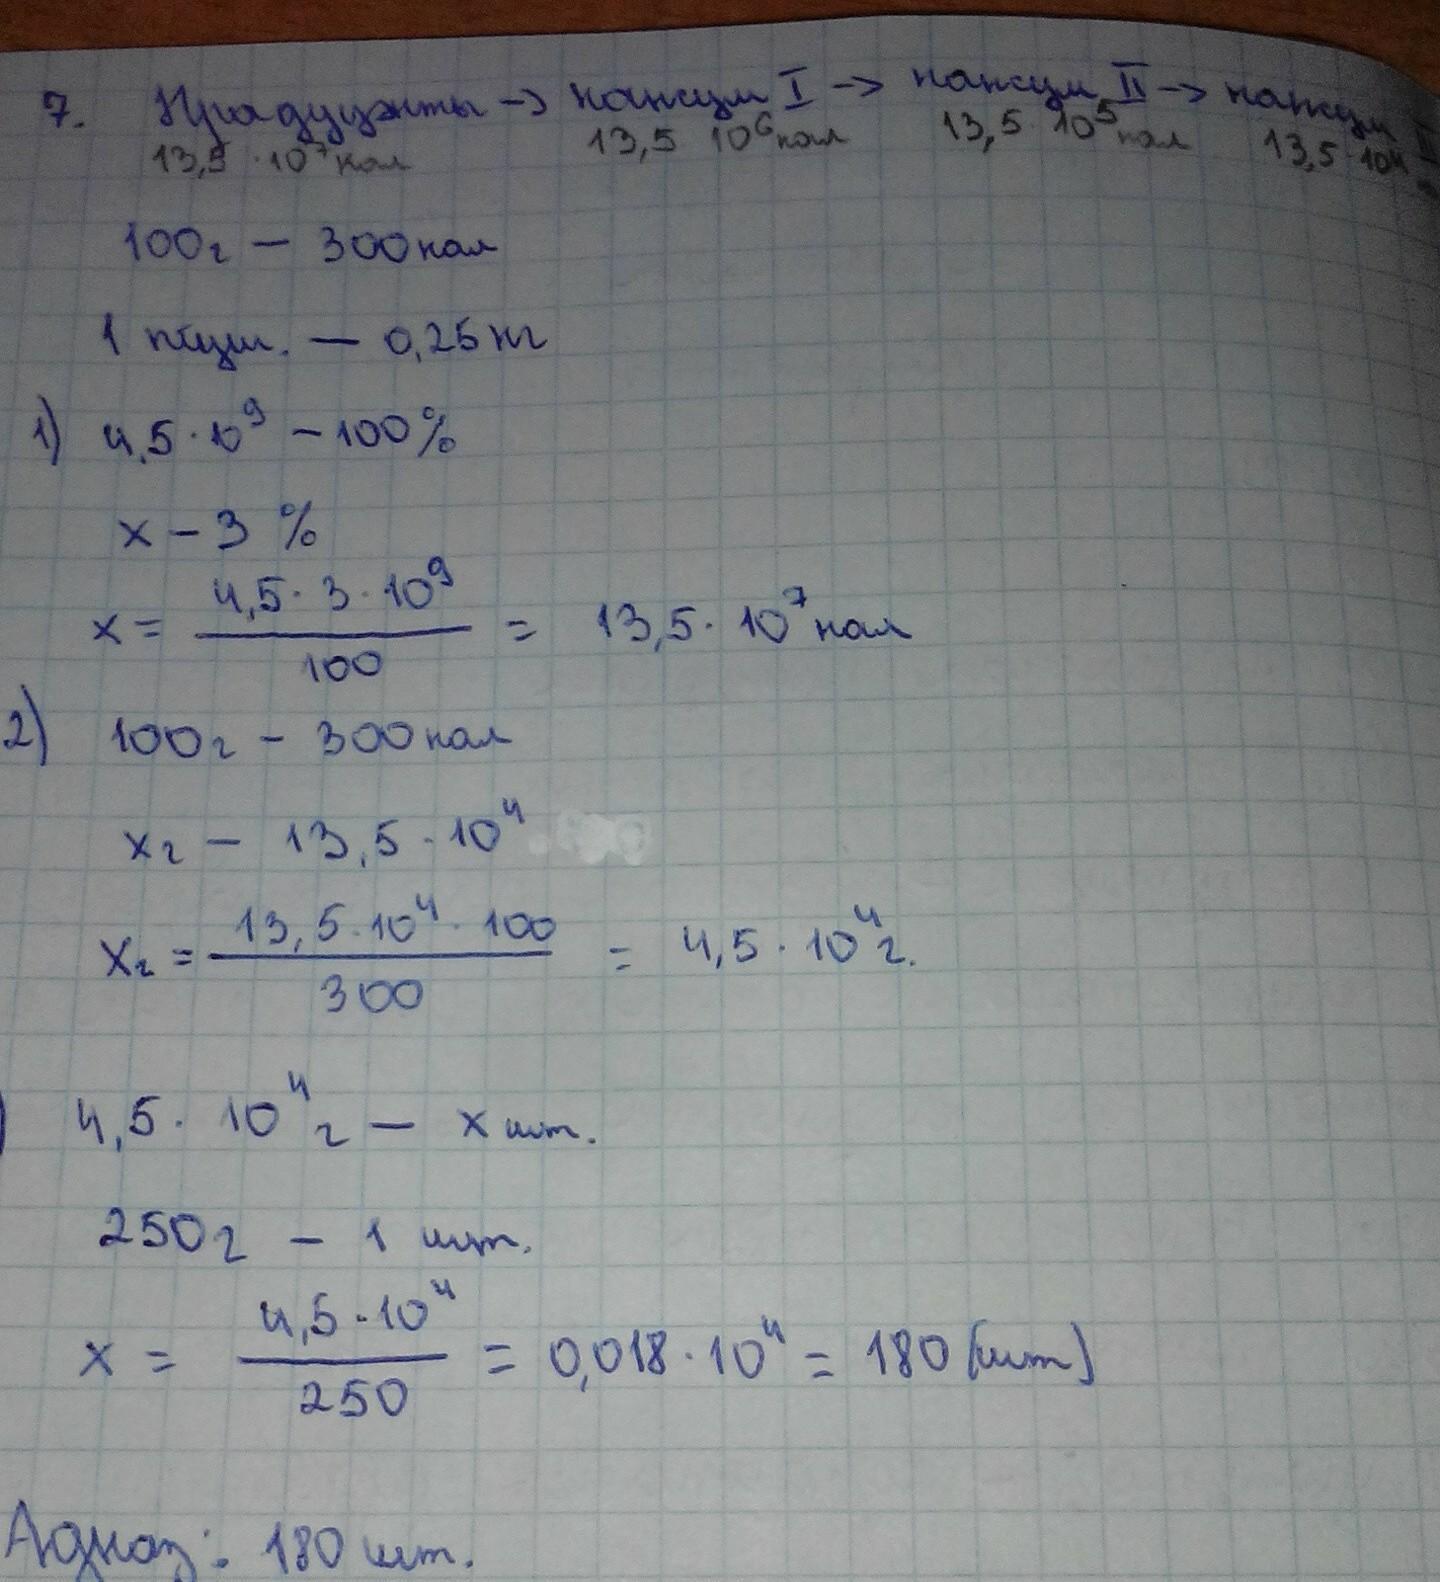 7. Прадуцэнты → кансум I → кансум II → кансум II
13,5 · 10⁷ кал 13,5 10⁶ кал 13,5 · 10⁵ кал 13,5 · 10⁴
100г – 300 кал
1 пцуш. – 0,25 кг
1) 4,5 · 10⁹ – 100%
х – 3 %
х = 4,5 · 3 · 10⁹ / 100 = 13,5 · 10⁷ кал
2) 100г – 300 кал
хг – 13,5 · 10⁴
хг = 13,5 · 10⁴ · 100 / 300 = 4,5 · 10⁴ г.
) 4,5 · 10⁴ г – х шт.
250г – 1 шт.
х = 4,5 · 10⁴ / 250 = 0,018 · 10⁴ = 180 (шт)
Адказ: 180 шт.